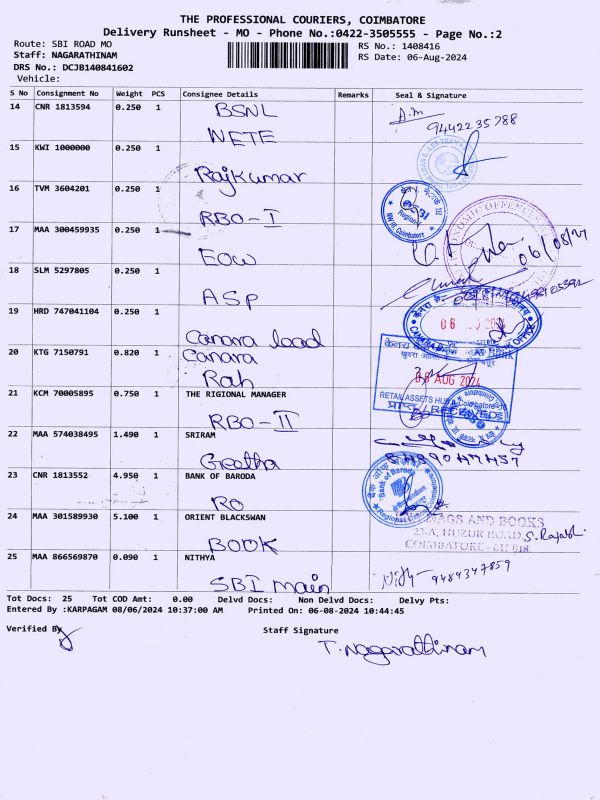 THE PROFESSIONAL COURIERS, COIMBATORE
Delivery Runsheet - MO - Phone No.:0422-3505555 - Page No.:2
Route: SBI ROAD MO
RS No.: 1408416
Staff: NAGARATHINAM
RS Date: 06-Aug-2024
DRS No.: DCJB140841602
Vehicle:
S No Consignment No Weight PCS Consignee Details Remarks Seal & Signature
14 CNR 1813594 0.250 1 BSNL
9442235788
NETE
15 KWI 1000000 0.250 1
Rajkumar
16 TVM 3604201 0.250 1
RBO-I
Regional
17 MAA 300459935 0.250 1
EOW
06/08/24
18 SLM 5297805 0.250 1
ASP
19 HRD 747041104 0.250 1
Canara load
20 KTG 7150791 0.820 1 Canara
Rah
08 AUG 2024
21 KCM 70005895 0.750 1 THE RIGIONAL MANAGER
RETAIL ASSETS HUB
RECEIVED
RBO-II
22 MAA 574038495 1.490 1 SRIRAM
Geetha
23 CNR 1813552 4.950 1 BANK OF BARODA
Bank of Baroda
RO
24 MAA 301589930 5.100 1 ORIENT BLACKSWAN
MAGS AND BOOKS
22-A, HUZUR ROAD,
COIMBATORE - 641 018.
BOOK
25 MAA 866569870 0.090 1 NITHYA
9489347859
SBI main
Tot Docs: 25 Tot COD Amt: 0.00 Delvd Docs: Non Delvd Docs: Delvy Pts:
Entered By :KARPAGAM 08/06/2024 10:37:00 AM Printed On: 06-08-2024 10:44:45
Verified By
Staff Signature
T. Nagarathinam